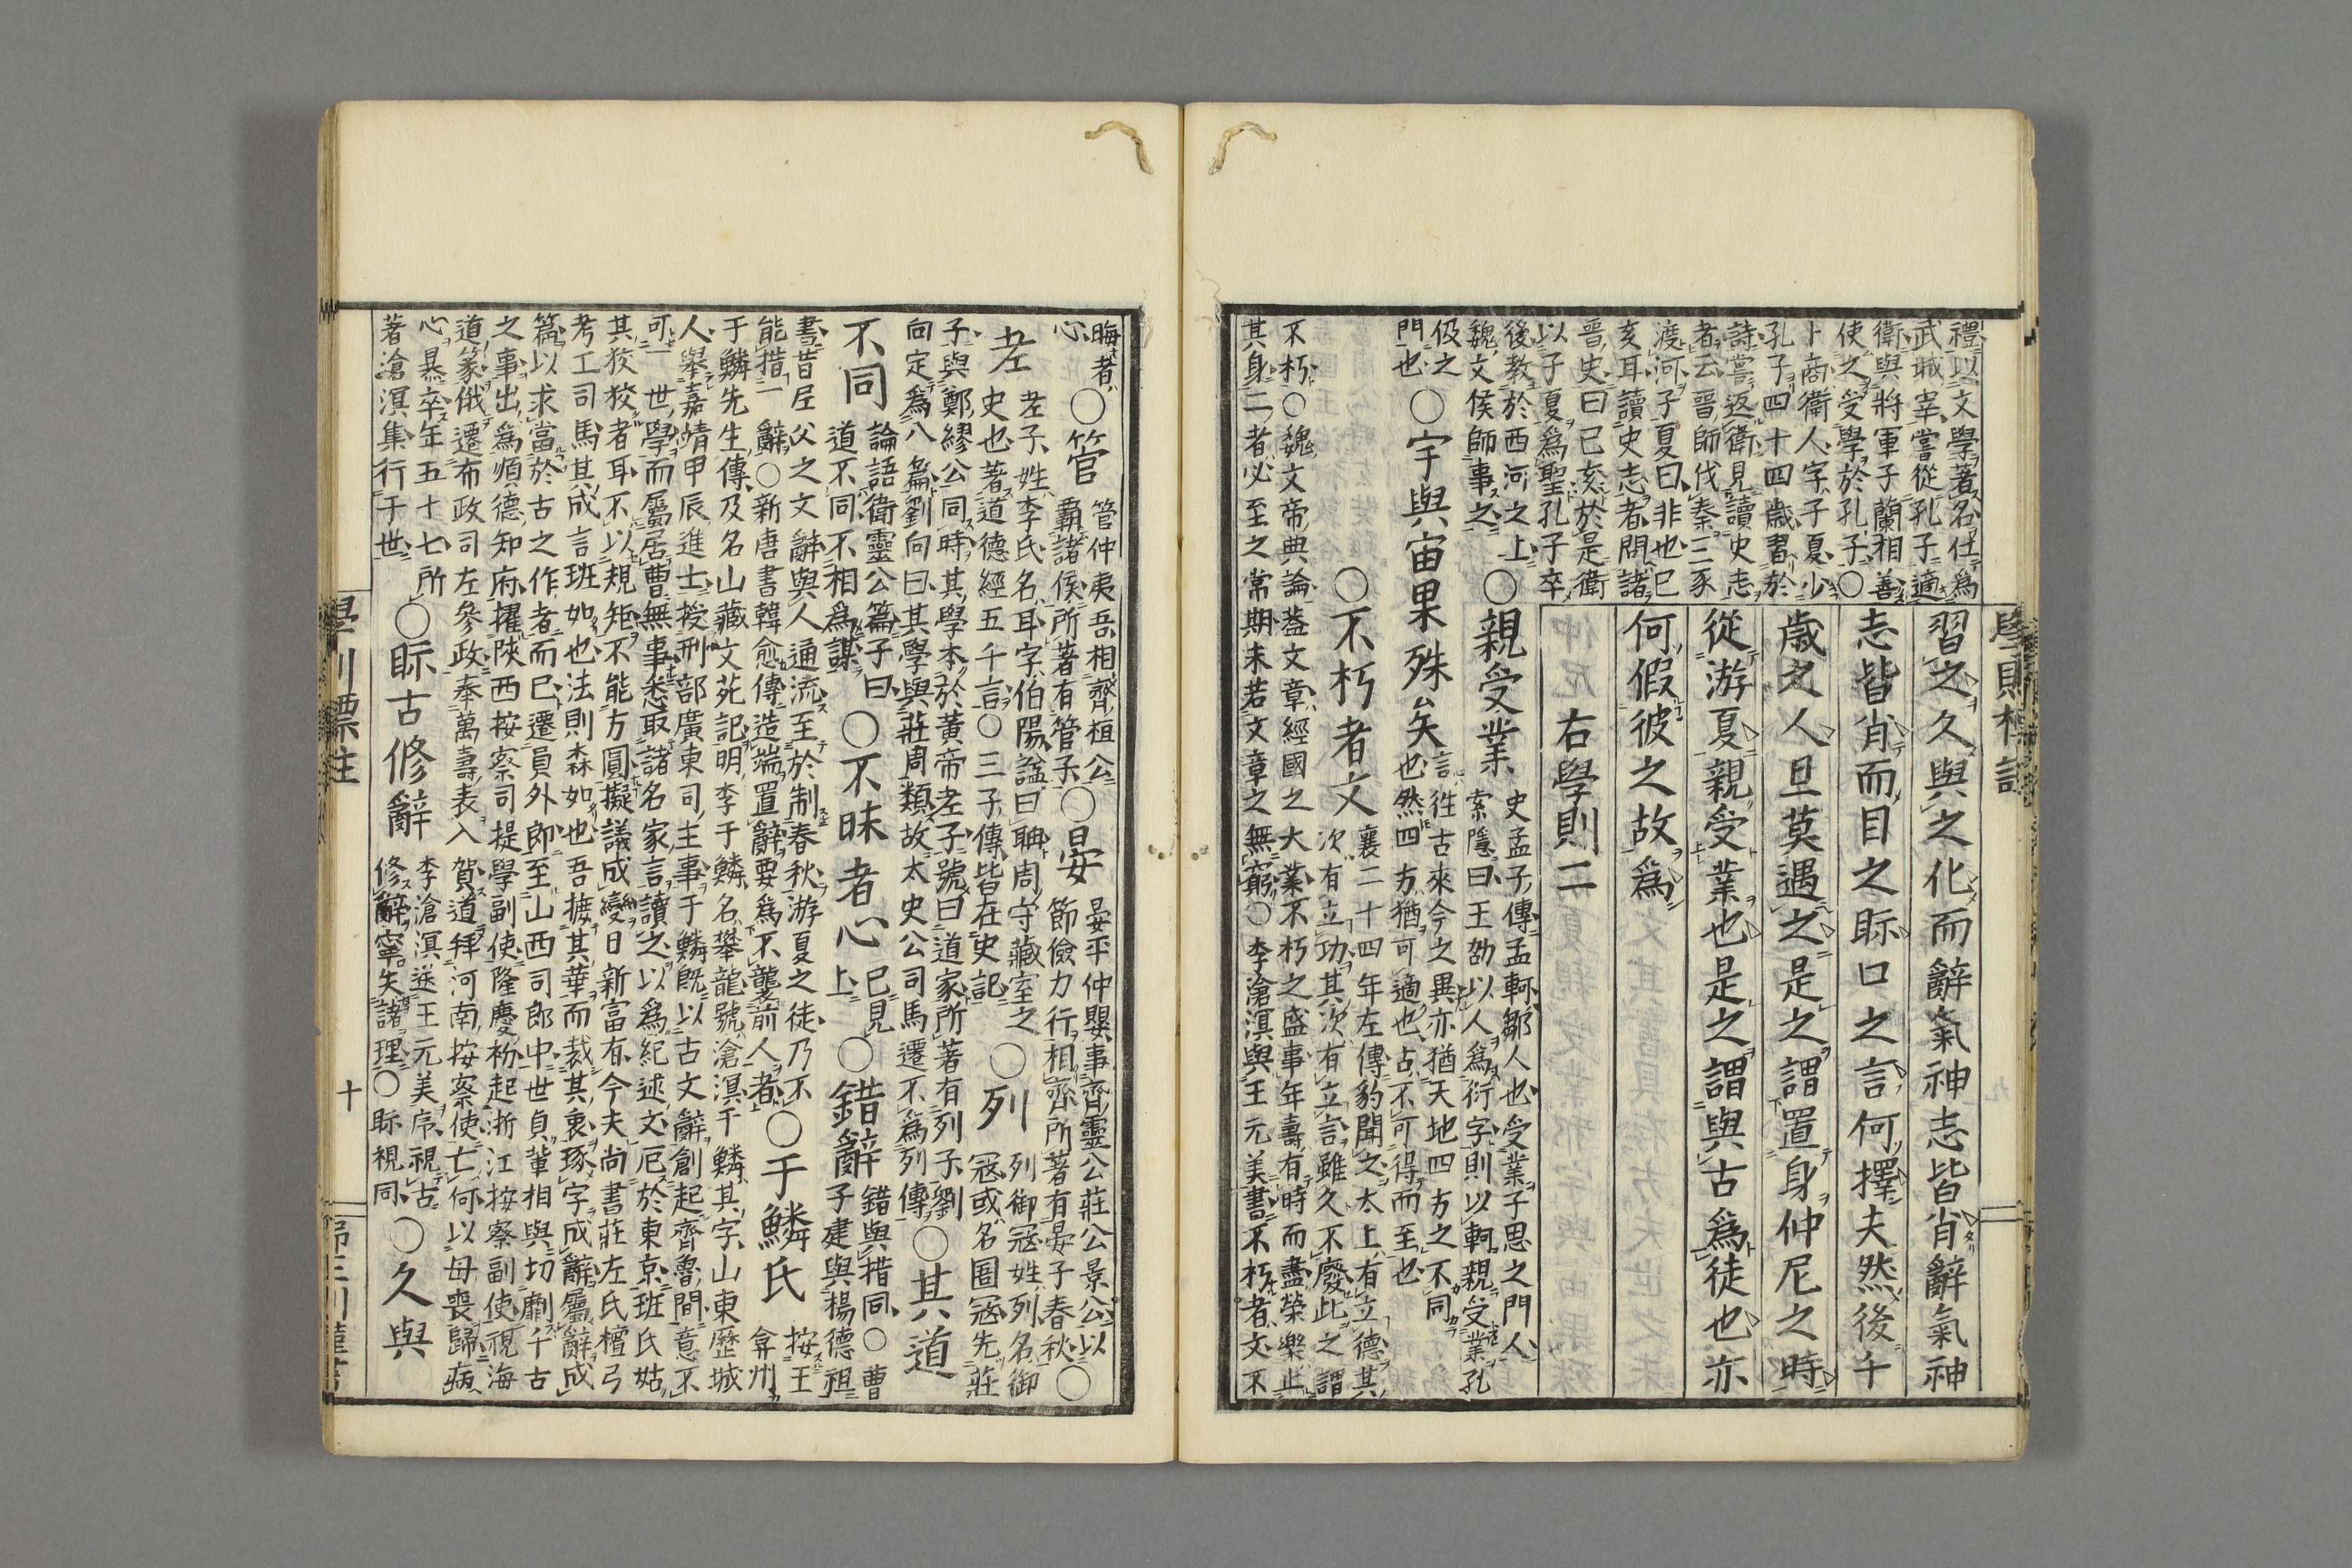 學則標註
禮以文學著名仕爲
武城宰嘗從孔子適
衛與將軍子蘭相善
使之受學於孔子○
卜商衛人字子夏少
孔子四十四歳書於
詩嘗返衛見讀史志
者云晋師伐秦三豕
渡河子夏曰非也已
亥耳讀史志者問諸
晋史曰已亥於是衛
以子夏爲聖孔子卒
後教於西河之上
魏文侯師事之
伋之
門也
習之久與之化而辭氣神志皆肖辭氣神
志皆肖而目之眎口之言何擇夫然後千
歳之人旦莫遇之是之謂置身仲尼之時
從游夏親受業也是之謂與古爲徒也亦
何假彼之故爲
右學則二
○親受業
史孟子傳孟軻鄒人也受業子思之門人
索隱曰王劭以人爲衍字則以軻親受業孔
○宇與宙果殊矣
言徃古來今之異亦猶天地四方之不同
也然四方猶可適也占不可得而至也
○不朽者文
襄二十四年左傳豹聞之太上有立德其
次有立功其次有立言雖久不廢此之謂
不朽○魏文帝典論蓋文章經國之大業不朽之盛事年壽有時而盡榮樂止
其身二者必至之常期未若文章之無窮○李滄溟與王元美書不朽者文不
晦者
心
○管
管仲夷吾相齊桓公
霸諸侯所著有管子
○晏
晏平仲嬰事齊靈公莊公景公以
節儉力行相齊所著有晏子春秋○
老
老子姓李氏名耳字伯陽謚曰聃周守藏室之
史也著道德經五千言○三子傳皆在史記
○列
列御寇姓列名御
寇或名圄寇先莊
子與鄭繆公同時其學本於黄帝老子號曰道家所著有列子劉
向定爲八篇劉向曰其學與莊周類故太史公司馬遷不爲列傳
○其道
不同
論語衛靈公篇子曰
道不同不相爲謀
○不昧者心
已見
上
○錯辭
錯與措同○曹
子建與楊德祖
書昔尼父之文辭與人通流至於制春秋游夏之徒乃不
能措一辭○新唐書韓愈傳造端置辭要爲不襲前人者
○于鱗氏
按王
弇州
于鱗先生傳及名山藏文苑記明李于鱗名攀龍號滄溟于鱗其字山東歴城
人舉嘉靖甲辰進士授刑部廣東司主事于鱗既以古文辭創起齊魯間意不
可一世學而屬居曹無事悉取諸名家言讀之以爲紀述文厄於東京班氏姑
其狡狡者耳不以規矩不能方圓擬議成變日新富有今夫尚書莊左氏檀弓
考工司馬其成言班如也法則森如也吾摭其華而裁其衷琢字成辭屬辭成
篇以求當於古之作者而已遷員外郎至山西司郎中世貞輩相與切劘千古
之事出爲順德知府擢陝西按察司提學副使隆慶初起浙江按察副使視海
道篆俄遷布政司左參政奉萬壽表入賀道拜河南按察使亡何以母喪歸病
心暴卒年五十七所
著滄溟集行于世
○眎古修辭
李滄溟送王元美序視古
修辭寧失諸理○眎視同
○久與
十